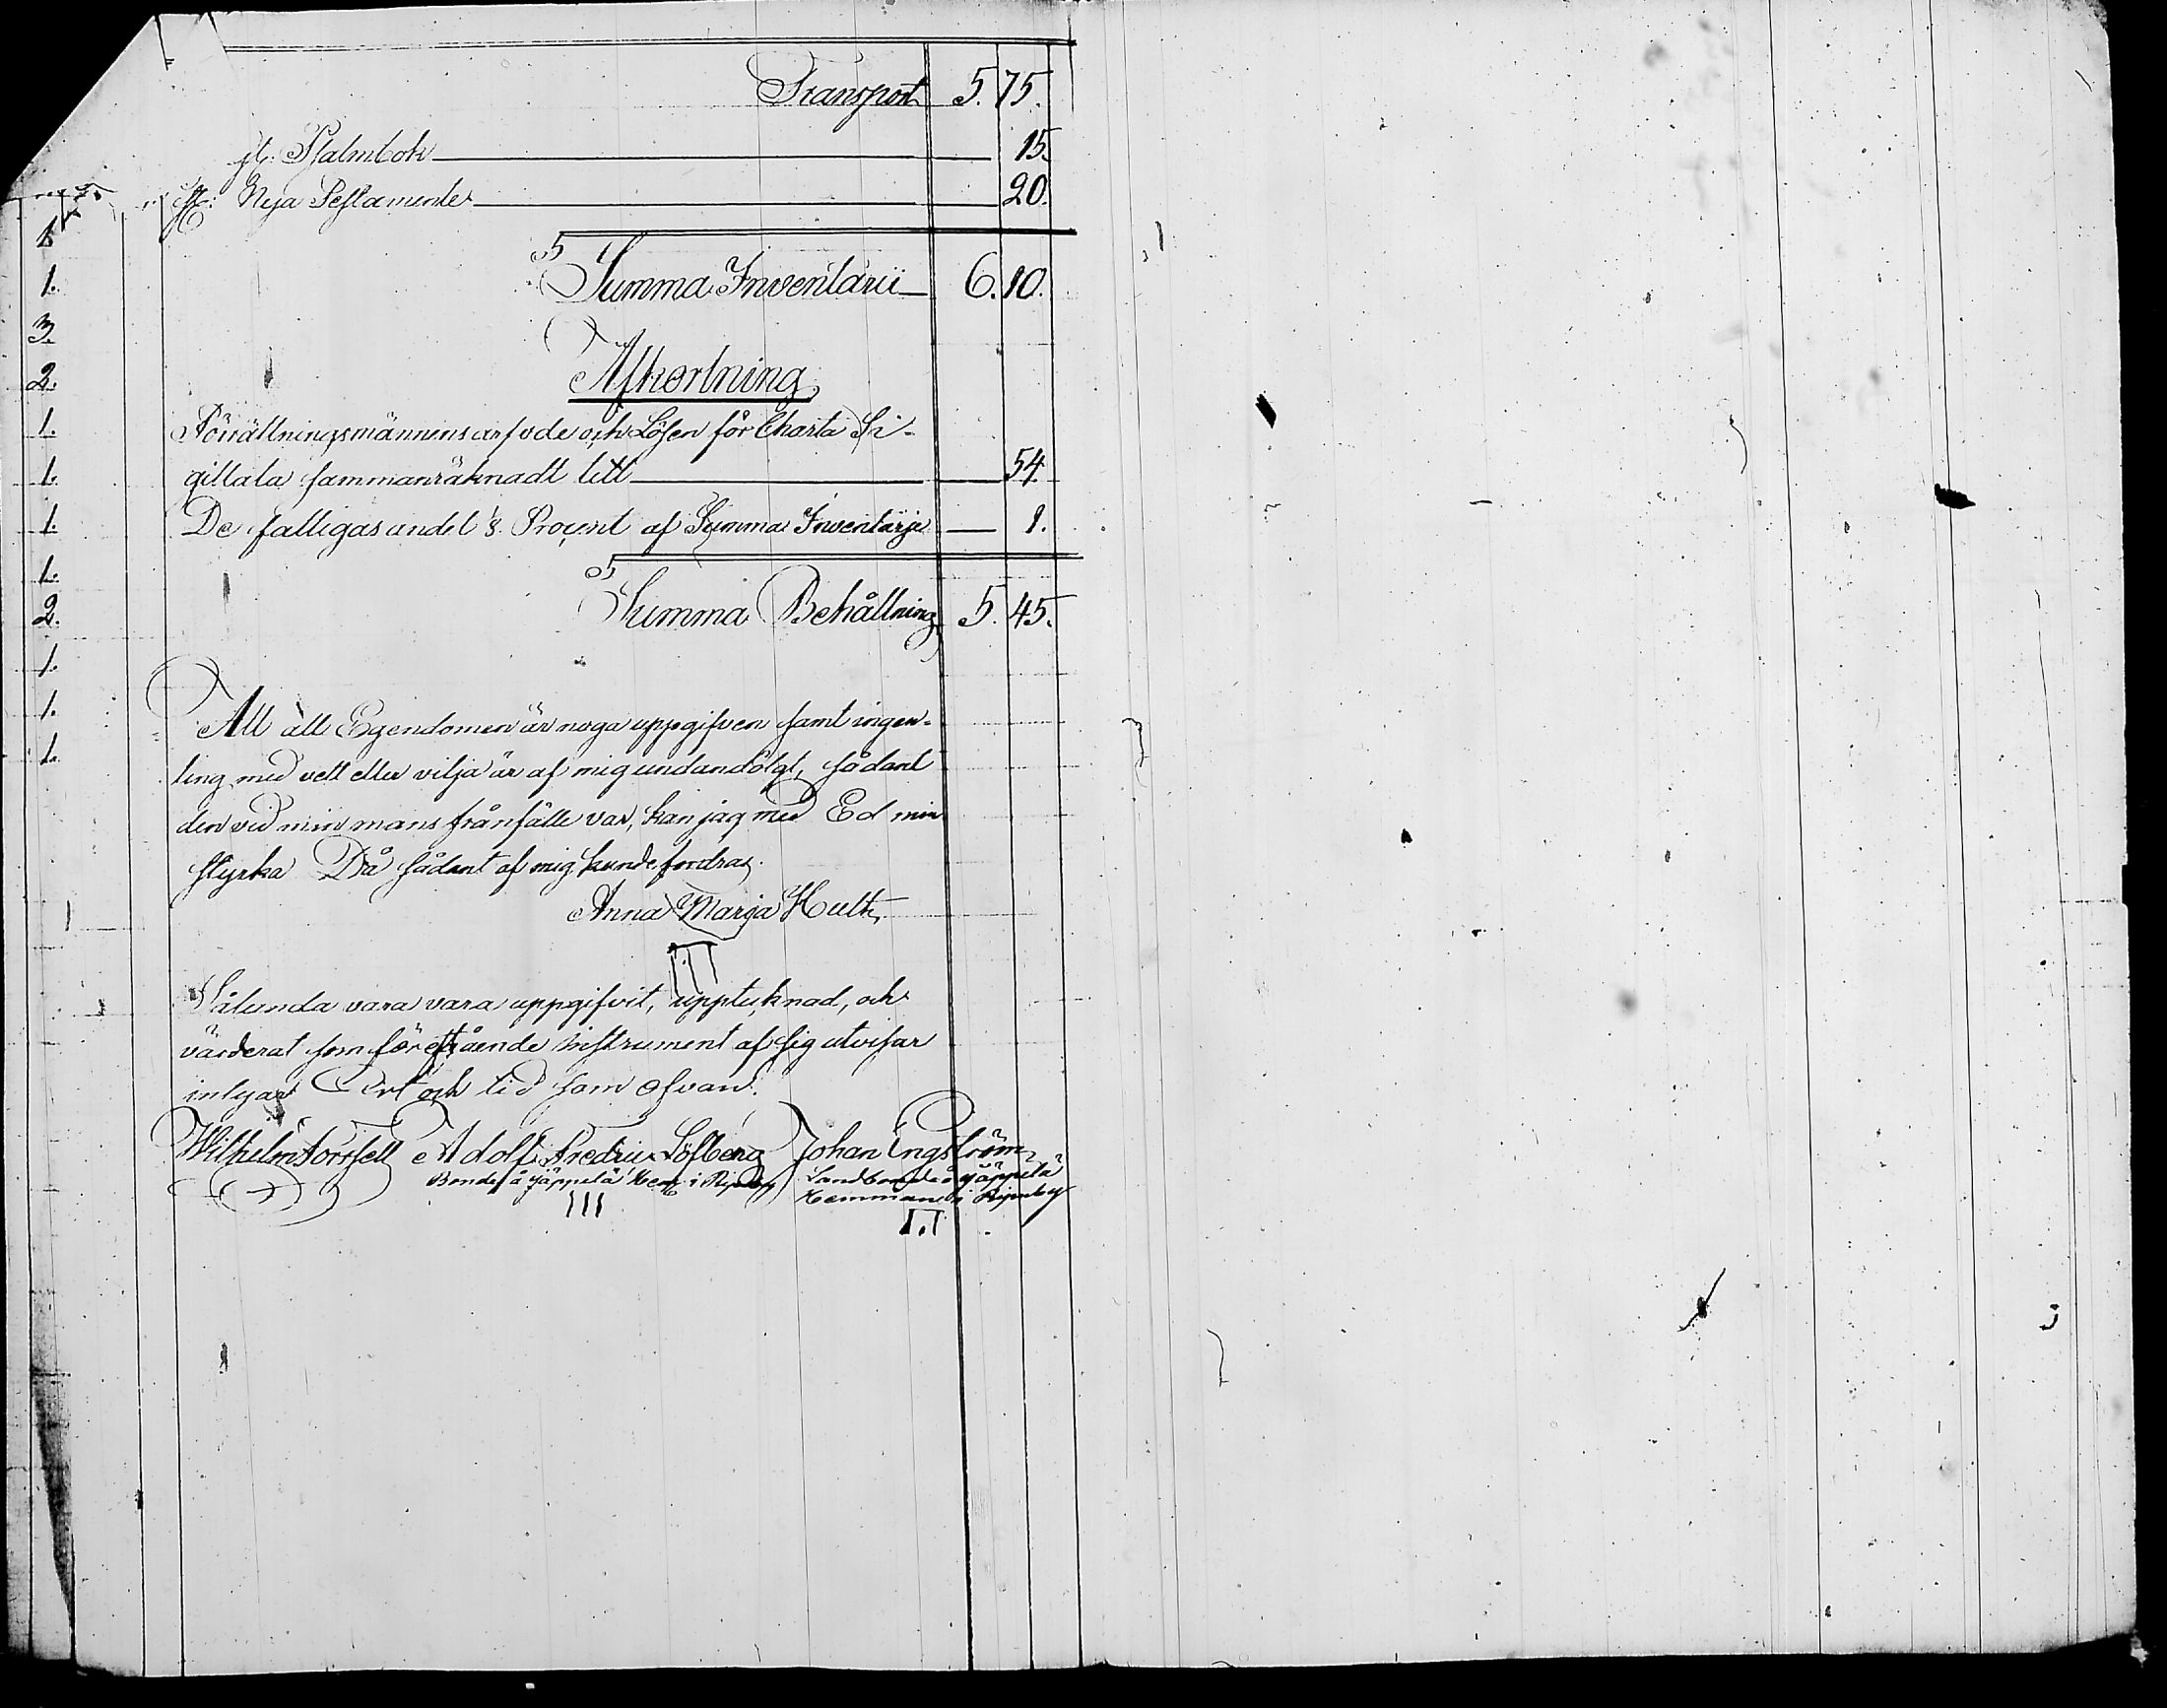 Transport 5. 75.
st: Psalmbok 15.
st: Nya Testamente 20.
S
Summa Inventarii 6. 10.
Afkortning
Förrättningsmännens arfvode och Lösen för Charta Si-
gillata sammanräknadt till 54.
De fattigas andel 1/8 Procent af Summa Inventarje 1.
S
Summa Behållning 5. 45.
Att all Egendomen är noga uppgifven samt ingen-
ting med vett eller vilja är af mig undandölgt, sådant
den vid min mans frånfälle var, kan jag med Ed min
styrka Då sådant af mig kunde fordras.
Anna Marja Hult
Sålunda vara vara uppgifvit, upptecknad, och
värderat som förestående instrument af sig utvisar
intygar Ort och tid som ofvan.
Wilhelm Forssell Adolf Fredric Löfberg Johan Engström
Bonde å Jäppilä Hem: i Landbonde å Jäppilä
Hemman i
1
1.
3.
2.
1.
1.
1.
1.
2.
1.
1.
1.